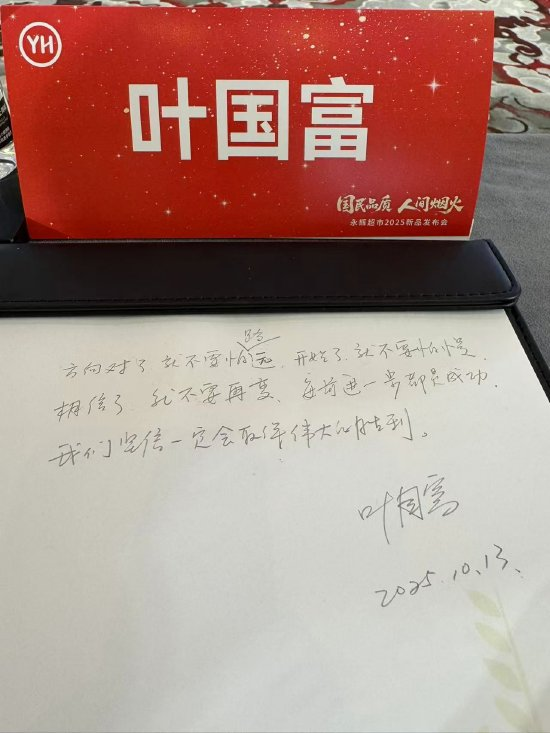 YH
叶国富
国民品质 人间烟火
永辉超市2025新品发布会
方向对了就不要怕路远，开始了，就不要怕慢，
相信了，就不要再变、每前进一步都是成功，
我们坚信一定会取得伟大的胜利。
叶国富
2025.10.13.